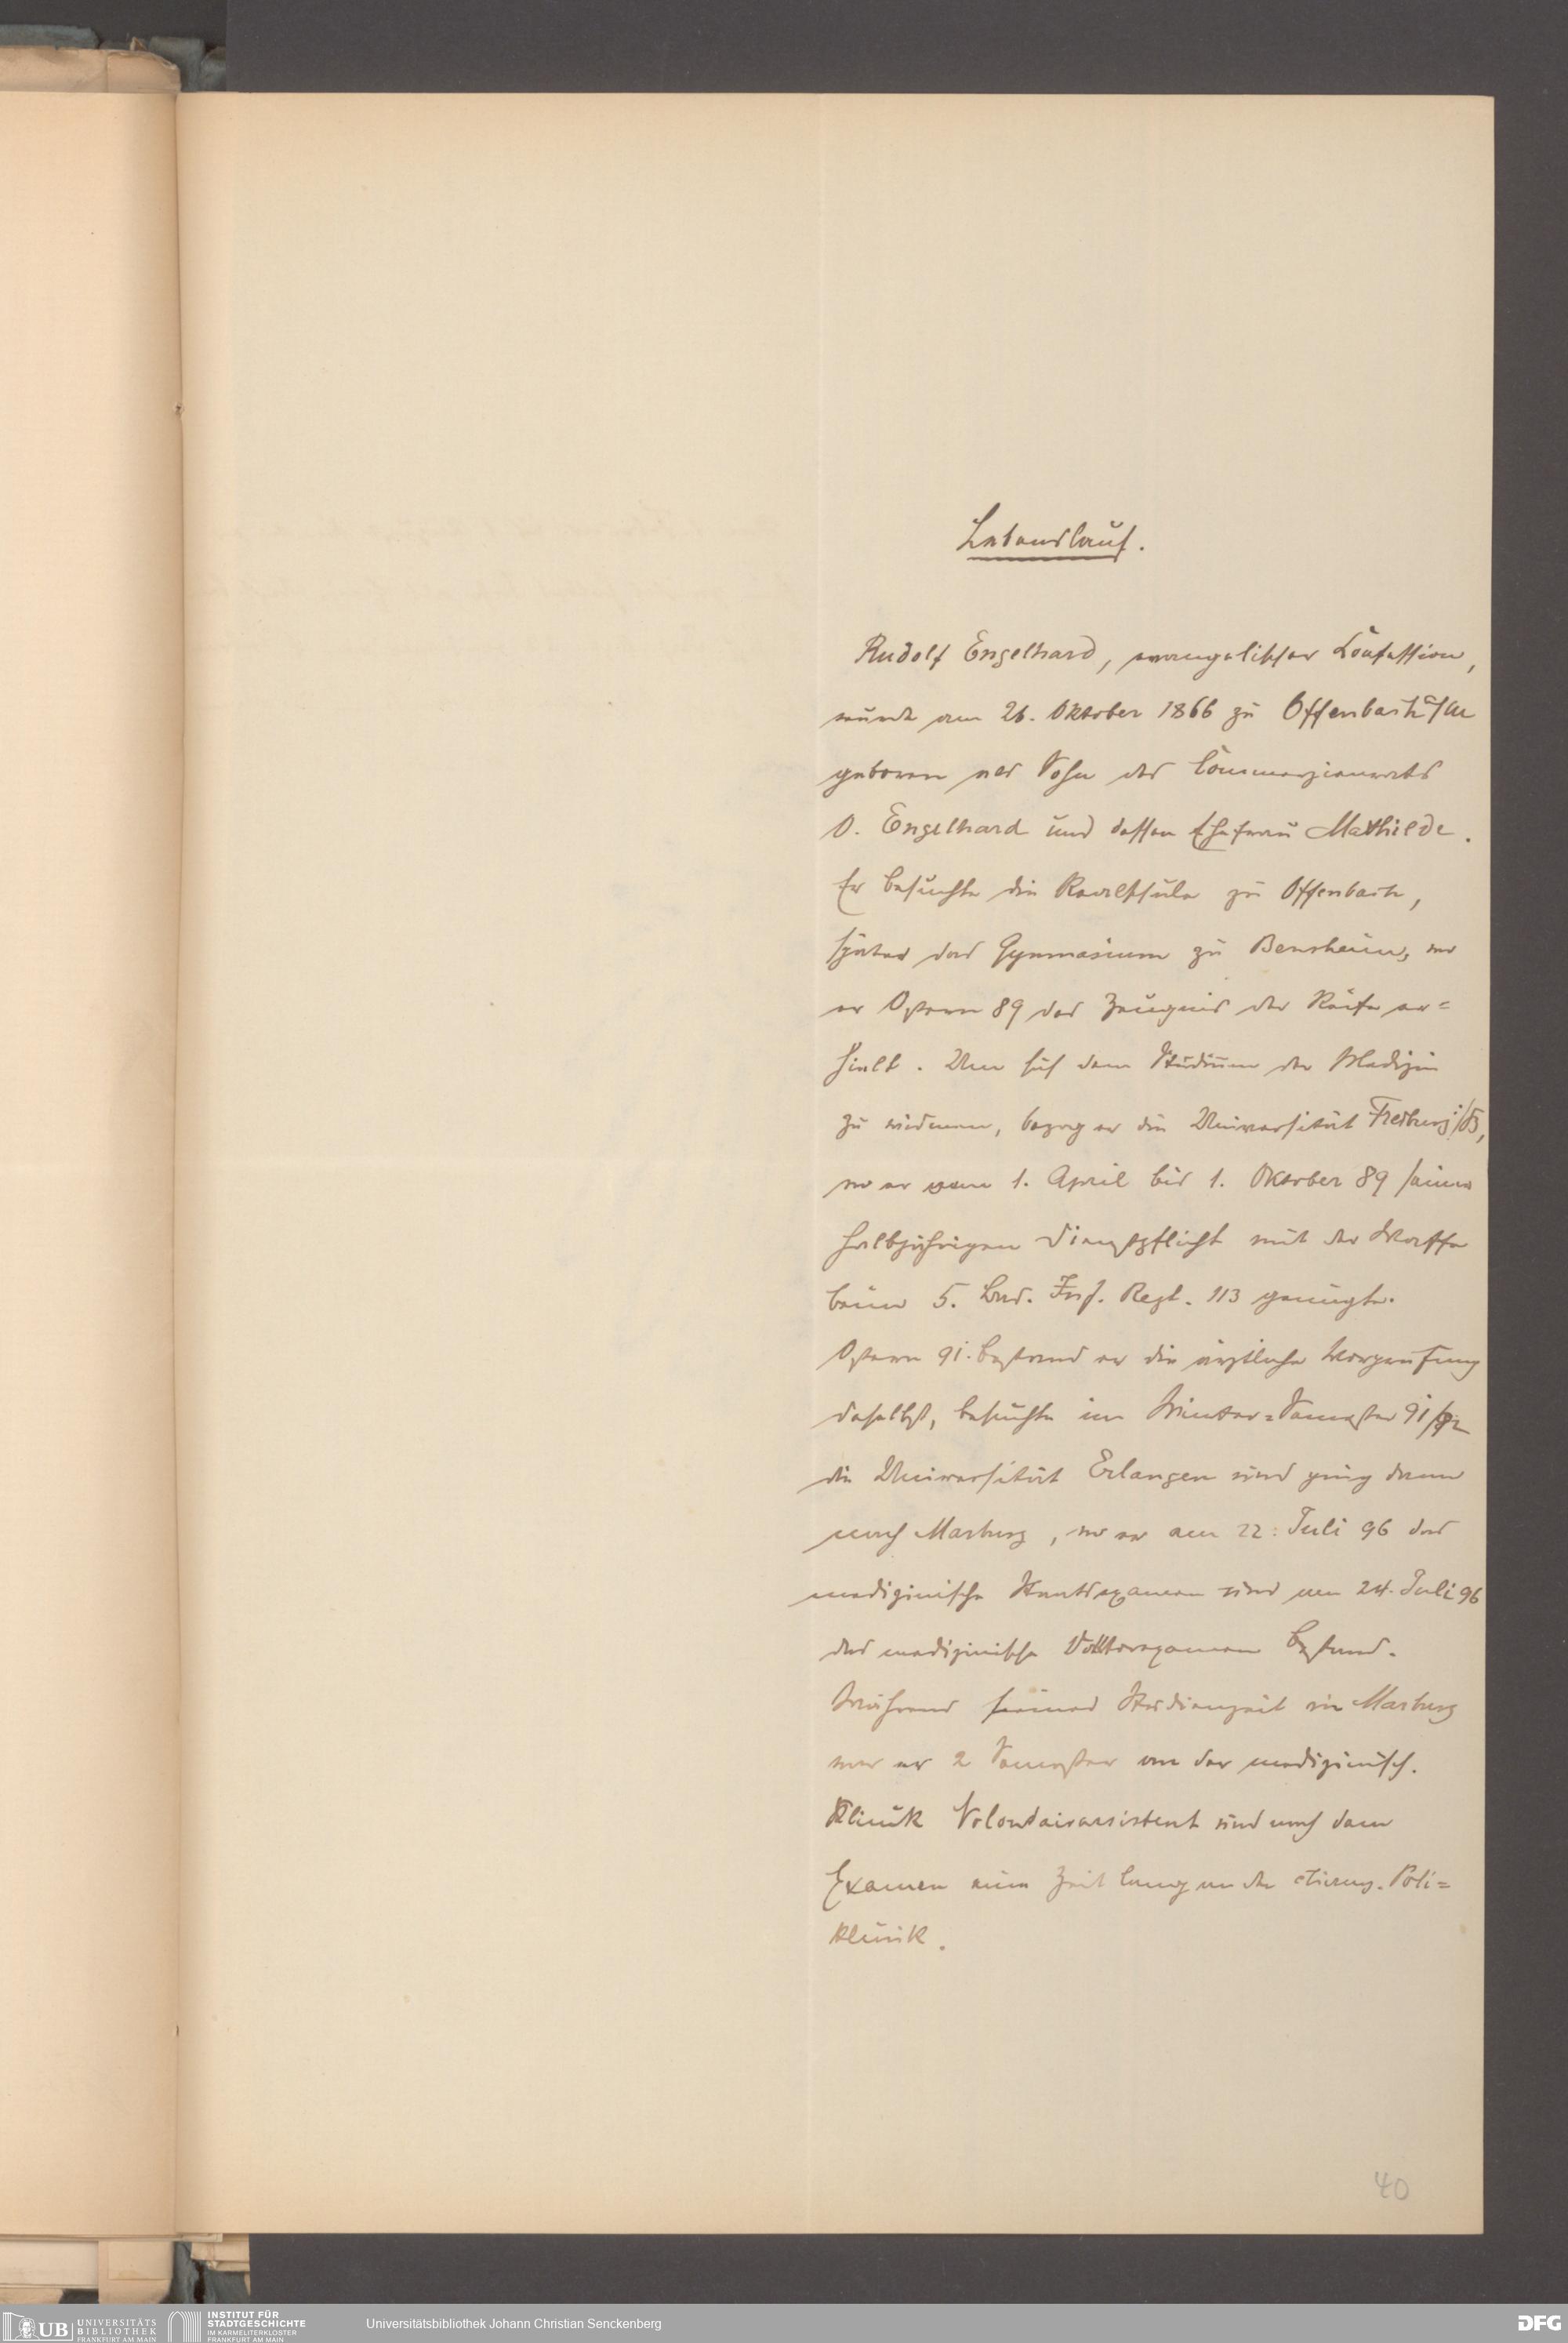 Lebenslauf.
Rudolf Engelhard, evangelischer Confession,
wurde am 26. Oktober 1866 zu Offenbach a/M
geboren als Sohn des Commerzienrats
O. Engelhard und dessen Ehefrau Mathilde.
Er besuchte die Realschule zu Offenbach,
später das Gymnasium zu Bensheim, wo
er Ostern 89 das Zeugnis der Reife er=
hielt. Um sich dem Studium der Medizin
zu widmen, bezog er die Universität Freiburg i/B,
wo er vom 1. April bis 1. Oktober 89 seiner
halbjährigen Dienstpflicht mit der Waffe
beim 5. Bad. Inf. Regt. 113 genügte.
Ostern 91. bestand er die ärztliche Vorprüfung
daselbst, besuchte im Winter=Semester 91/92
die Universität Erlangen und ging dann
nach Marburg, wo er am 22. Juli 96 das
medizinische Staatsexamen und am 24. Juli 96
das medizinische Doktorexamen bestand.
Während seiner Studienzeit in Marburg
war er 2 Semester an der medizinisch.
Klinik Volontairassistent und nach dem
Examen eine Zeit lang an der chirurg. Poli=
klinik.
40
UB UNIVERSITÄTS
BIBLIOTHEK
FRANKFURT AM MAIN
INSTITUT FÜR
STADTGESCHICHTE
IM KARMELITERKLOSTER
FRANKFURT AM MAIN
Universitätsbibliothek Johann Christian Senckenberg
DFG